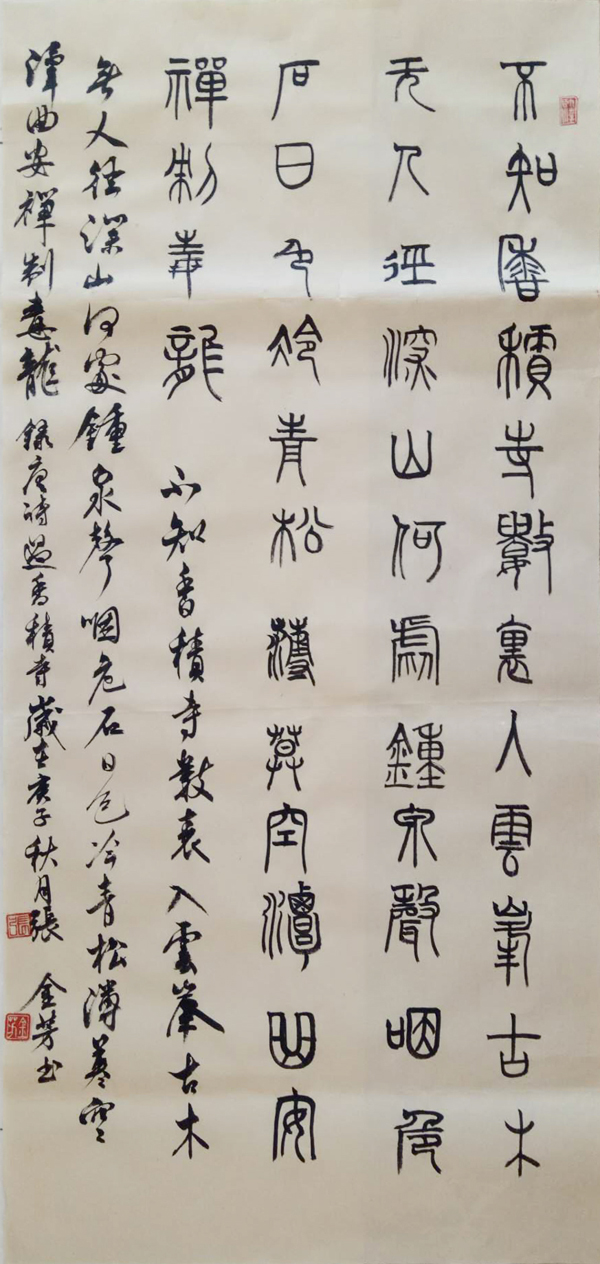 不知香積寺數裏入雲峯古木
无人徑深山何處鍾泉聲咽危
石日色冷青松薄莫空潭曲安
禪制毒龍
不知香積寺數裏入雲峯古木
無人徑深山何處鍾泉聲咽危石日色冷青松薄暮空
潭曲安禪制毒龍 錄唐詩過香積寺歲在庚子秋月張金芳书